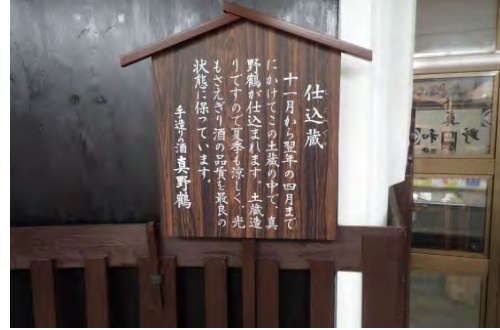 仕込蔵
十一月から翌年の四月まで
にかけてこの土蔵の中で、真
野鶴が仕込まれます。土蔵造
りですので夏季も涼しく、光
もさえぎり酒の品質を最良の
状態に保っています。
手造りの酒 真野鶴